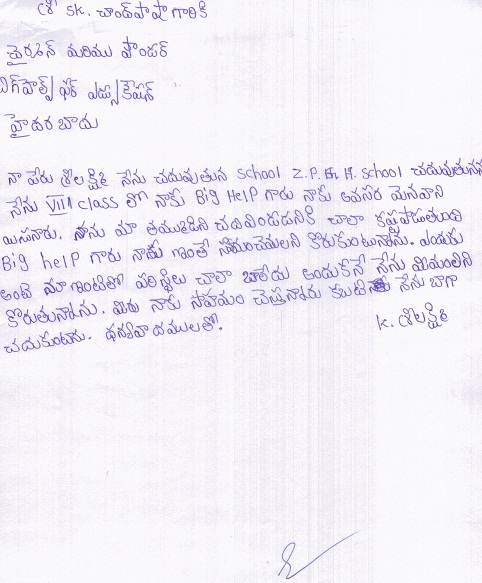 శ్రీ SK. చాంద్‌పాషా గారికి
చైర్మన్ మరియు ఫౌండర్
బిగ్‌హెల్ప్ ఫర్ ఎడ్యుకేషన్
హైదరబాదు
నా పేరు శ్రీలక్ష్మి నేను చదువుతున school Z.P. H. school చదువుతునన
నేను VIII class లో నాకు Big Help గారు నాకు అవసర మైనవాని
యిసినారు. నాను మా తముడిని చదివిండడనికి చాలా కష్టపాడుతుంది
Big help గారు నాకు ఇంతే సాయించెమలని కొరుకుంటున్నాను. ఎందుకు
అంటె మా ఇంటిలో పరిస్థితి చాలా బాలేదు అందుకేనే నేను మిమంలిని
కొరుతునాను. మిరు నాకు సాహయం చెస్తనారు కబటి నేను బాగా
చదుకుంటాను. ధన్యవాదములతో.
K. శ్రీలక్ష్మి